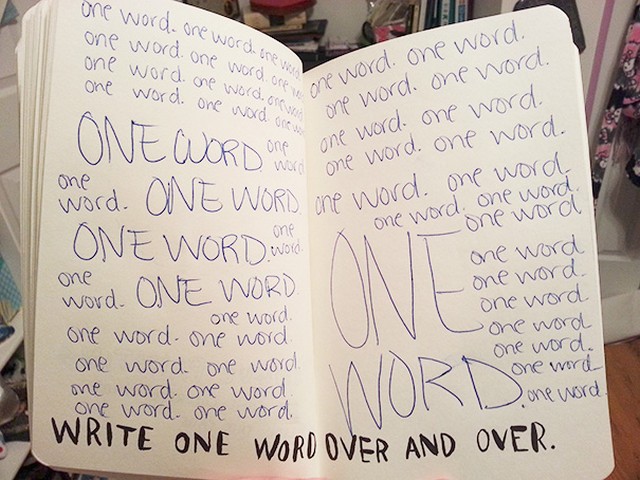 one word. one word. one word
one word. one word. one
one word. one word. one word
one word. one word. one word
ONE WORD. one word
one word. ONE WORD.
ONE WORD. one word.
one word. ONE WORD
one word.
one word. one word.
one word. one word.
one word. one word.
one word. one word.
one word. one word.
one word. one word.
one word. one word.
one word. one word.
one word. one word.
one word. one word.
one word. one word
ONE
one word
one word.
one word.
one word
one word.
WORD.
one word.
one word.
WRITE ONE WORD OVER AND OVER.